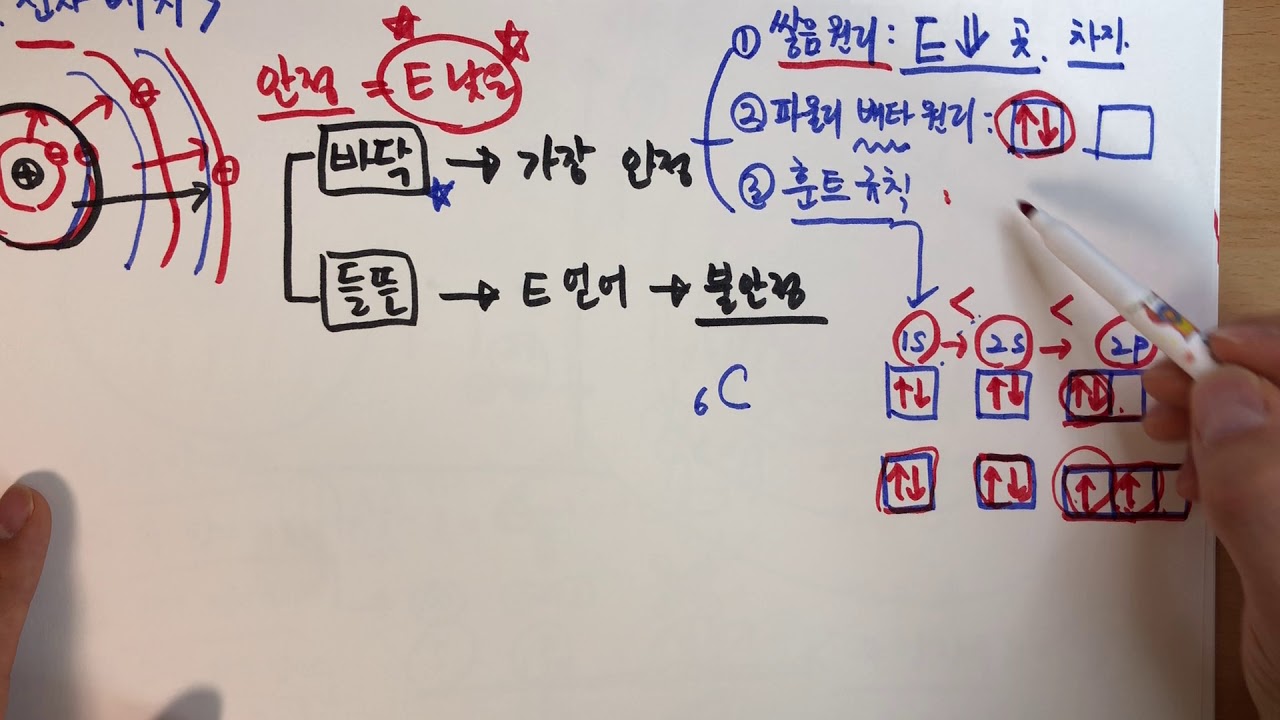 전자 배치
안정 = E 낮음
바닥 → 가장 안정
들뜬 → E 얻어 → 불안정
① 쌓음 원리: E↓ 곳. 차지.
② 파울리 배타 원리: ↑↓
③ 훈트 규칙
1s → < 2s → < 2p
↑↓ ↑↓ ↑↓
₆C
↑↓ ↑↓ ↑ ↑